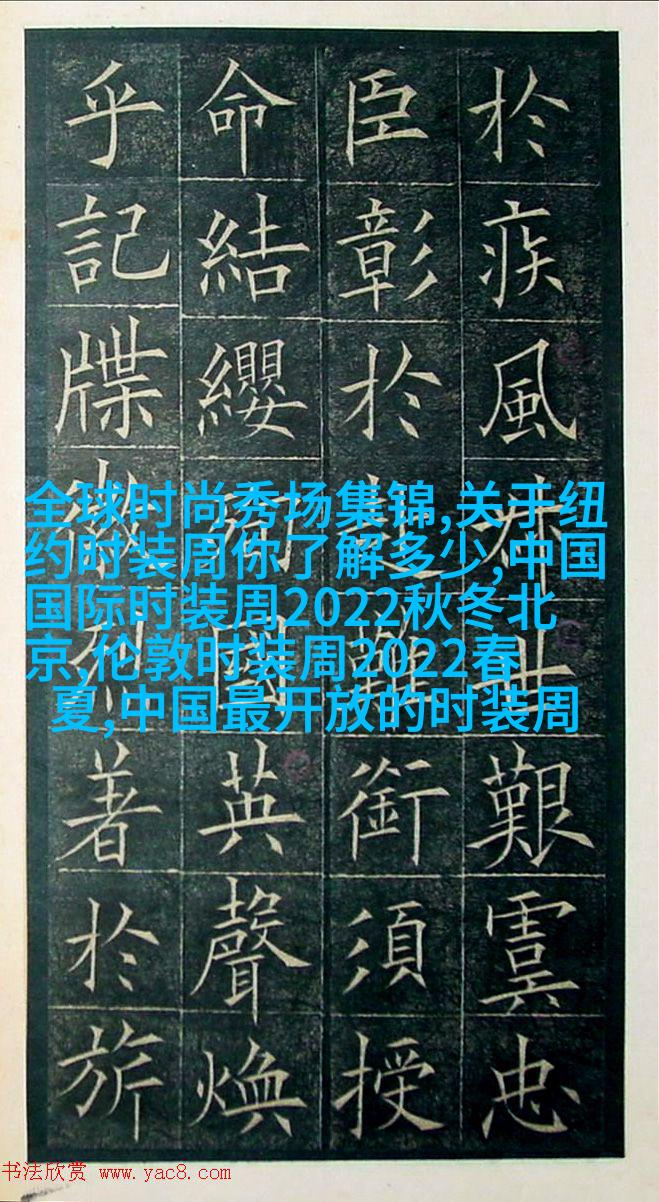 於疾風叔世艱虞忠
臣彰於赴難銜須授
命結纓殉國英聲煥
乎記牒徽烈著於旂
全球时尚秀场集锦,关于纽
约时装周你了解多少,中国
国际时装周2022秋冬北
京,伦敦时装周2022春
夏,中国最开放的时装周
书法欣赏 www.yac8.com